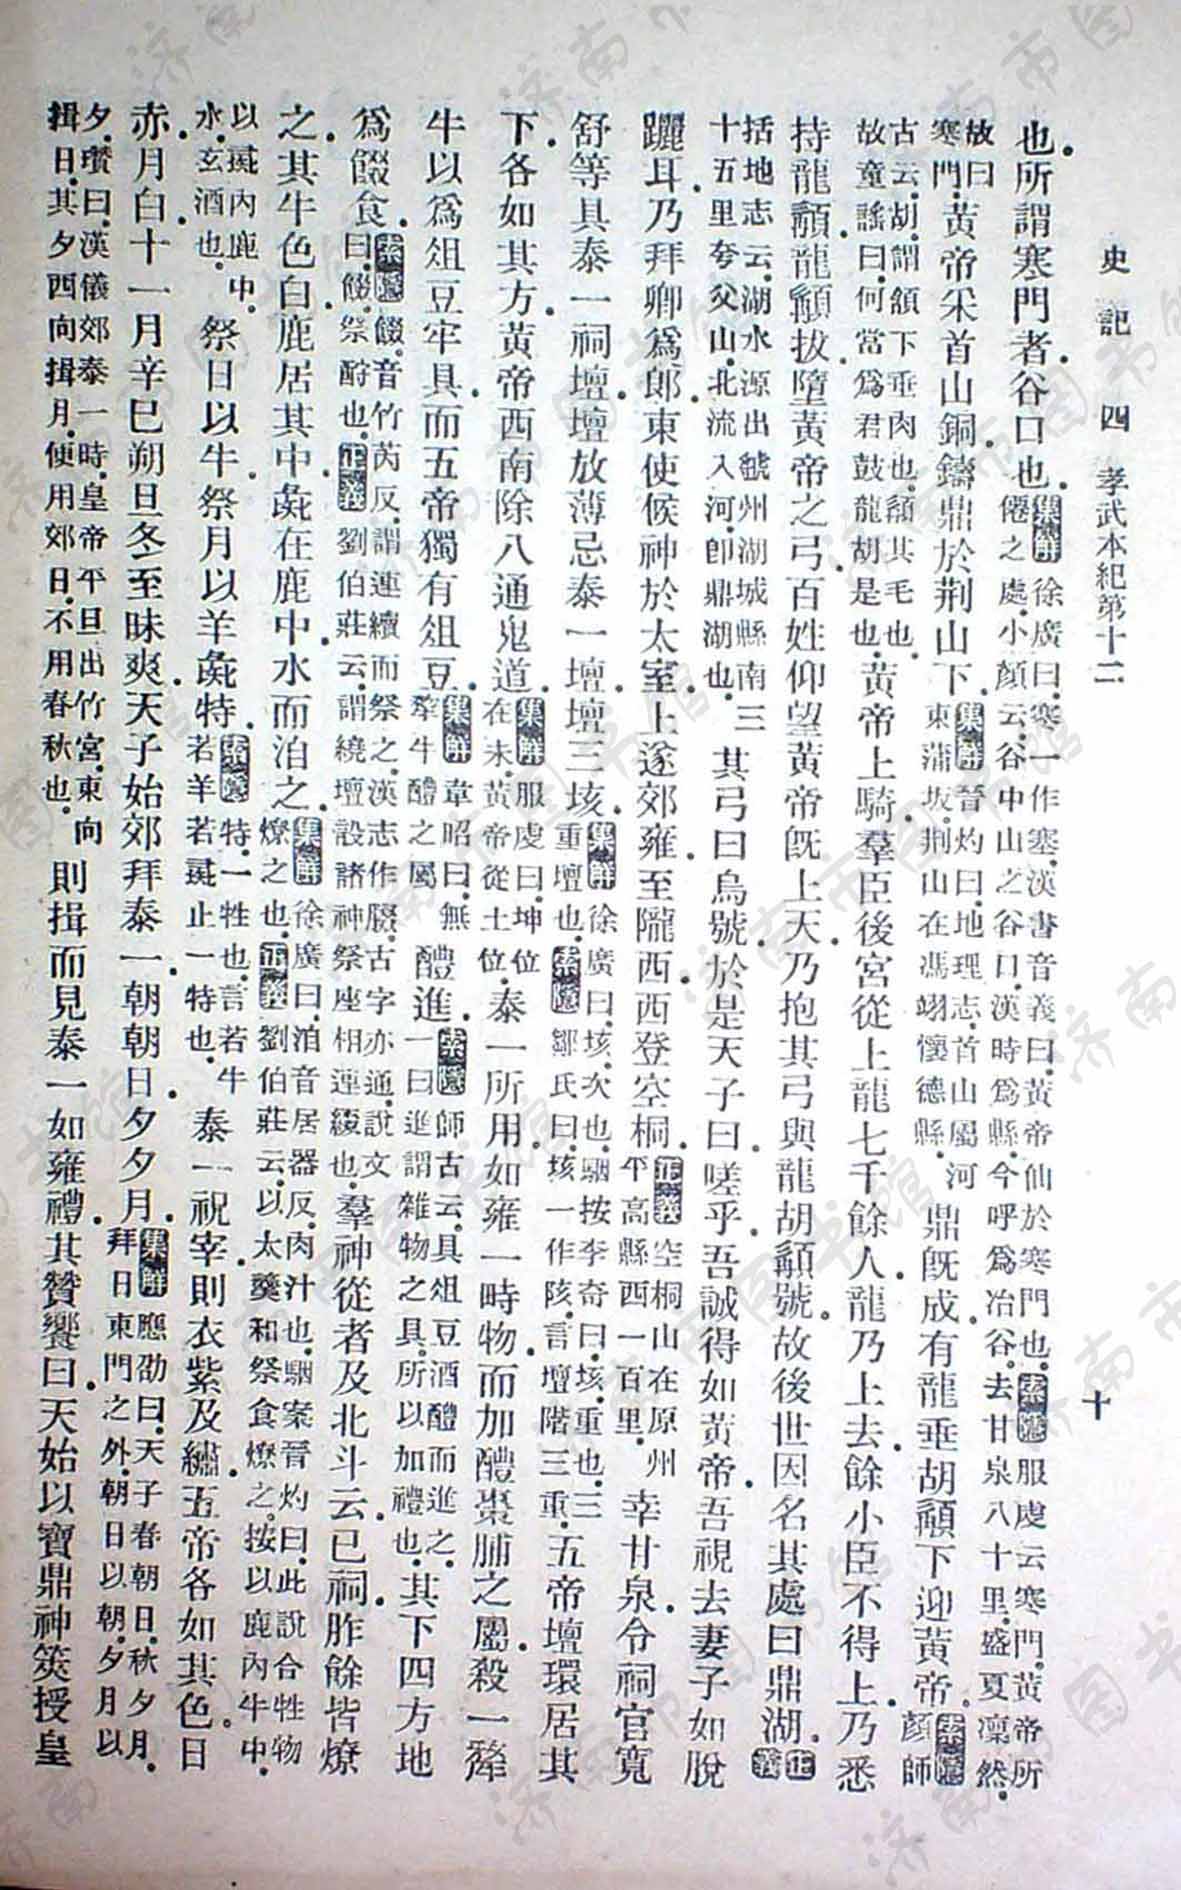 史記四 孝武本紀第十二 十
也。所謂寒門者。谷口也。集解徐廣曰。寒一作塞。漢書音義曰。黃帝仙於寒門也。索隱服虔云寒門。黃帝所僊之處。小顏云。谷中山之谷口。漢時爲縣。今呼爲冶谷。去甘泉八十里。盛夏凜然。
故曰寒門。黃帝采首山銅。鑄鼎於荆山下。集解晉灼曰。地理志。首山屬河東蒲坂。荆山在馮翊懷德縣。鼎既成。有龍垂胡䫇下迎黃帝。索隱顏師
古云。胡。謂頷下垂肉也。䫇其毛也。故童謠曰。何當爲君鼓龍胡是也。黃帝上騎。羣臣後宮從上龍七千餘人。龍乃上去。餘小臣不得上。乃悉
持龍䫇。龍䫇拔。墮黃帝之弓。百姓仰望黃帝旣上天。乃抱其弓與龍胡䫇號。故後世因名其處曰鼎湖。正義
括地志云。湖水源出虢州湖城縣南三十五里夸父山。北流入河。卽鼎湖也。其弓曰烏號。於是天子曰。嗟乎。吾誠得如黃帝。吾視去妻子如脫
躧耳。乃拜卿爲郎。東使候神於太室。上遂郊雍。至隴西。西登空桐。正義空桐山在原州平高縣西一百里。幸甘泉。令祠官寬
舒等具泰一祠壇。壇放薄忌泰一壇。壇三垓。集解徐廣曰。垓。次也。駰按李奇曰。垓。重也。三重壇也。索隱鄒氏曰。垓一作陔。言壇階三重。五帝壇環居其
下。各如其方。黃帝西南。除八通鬼道。集解服虔曰。坤位在未。黃帝從土位。泰一所用。如雍一畤物。而加醴棗脯之屬。殺一犛
牛以爲俎豆牢具。而五帝獨有俎豆。集解韋昭曰。無犛牛醴之屬。醴進。索隱師古云。具俎豆酒醴而進之。一曰進謂雜物之具。所以加禮也。其下四方地
爲餟食。索隱餟。音竹芮反。謂連續而祭之。漢志作腏。古字亦通。說文曰。餟。祭酹也。正義劉伯莊云。謂繞壇設諸神祭座相連綴也。羣神從者及北斗云。已祠。胙餘皆燎
之。其牛色白。鹿居其中。彘在鹿中。水而洎之。集解徐廣曰。洎音居器反。肉汁也。駰案晉灼曰。此說合牲物燎之也。正義劉伯莊云。以太羹和祭食燎之。按以鹿內牛中。
以彘內鹿中。水。玄酒也。祭日以牛。祭月以羊彘特。索隱特。一牲也。言若牛若羊若彘止一特也。泰一祝宰則衣紫及繡。五帝各如其色。日
赤。月白。十一月辛巳朔旦冬至。昧爽。天子始郊拜泰一。朝朝日。夕夕月。集解應劭曰。天子春朝日。秋夕月。拜日東門之外。朝日以朝。夕月以
夕。瓚曰。漢儀郊泰一畤。皇帝平旦出竹宮。東向揖日。其夕西向揖月。便用郊日。不用春秋也。則揖而見泰一如雍禮。其贊饗曰。天始以寶鼎神筴授皇